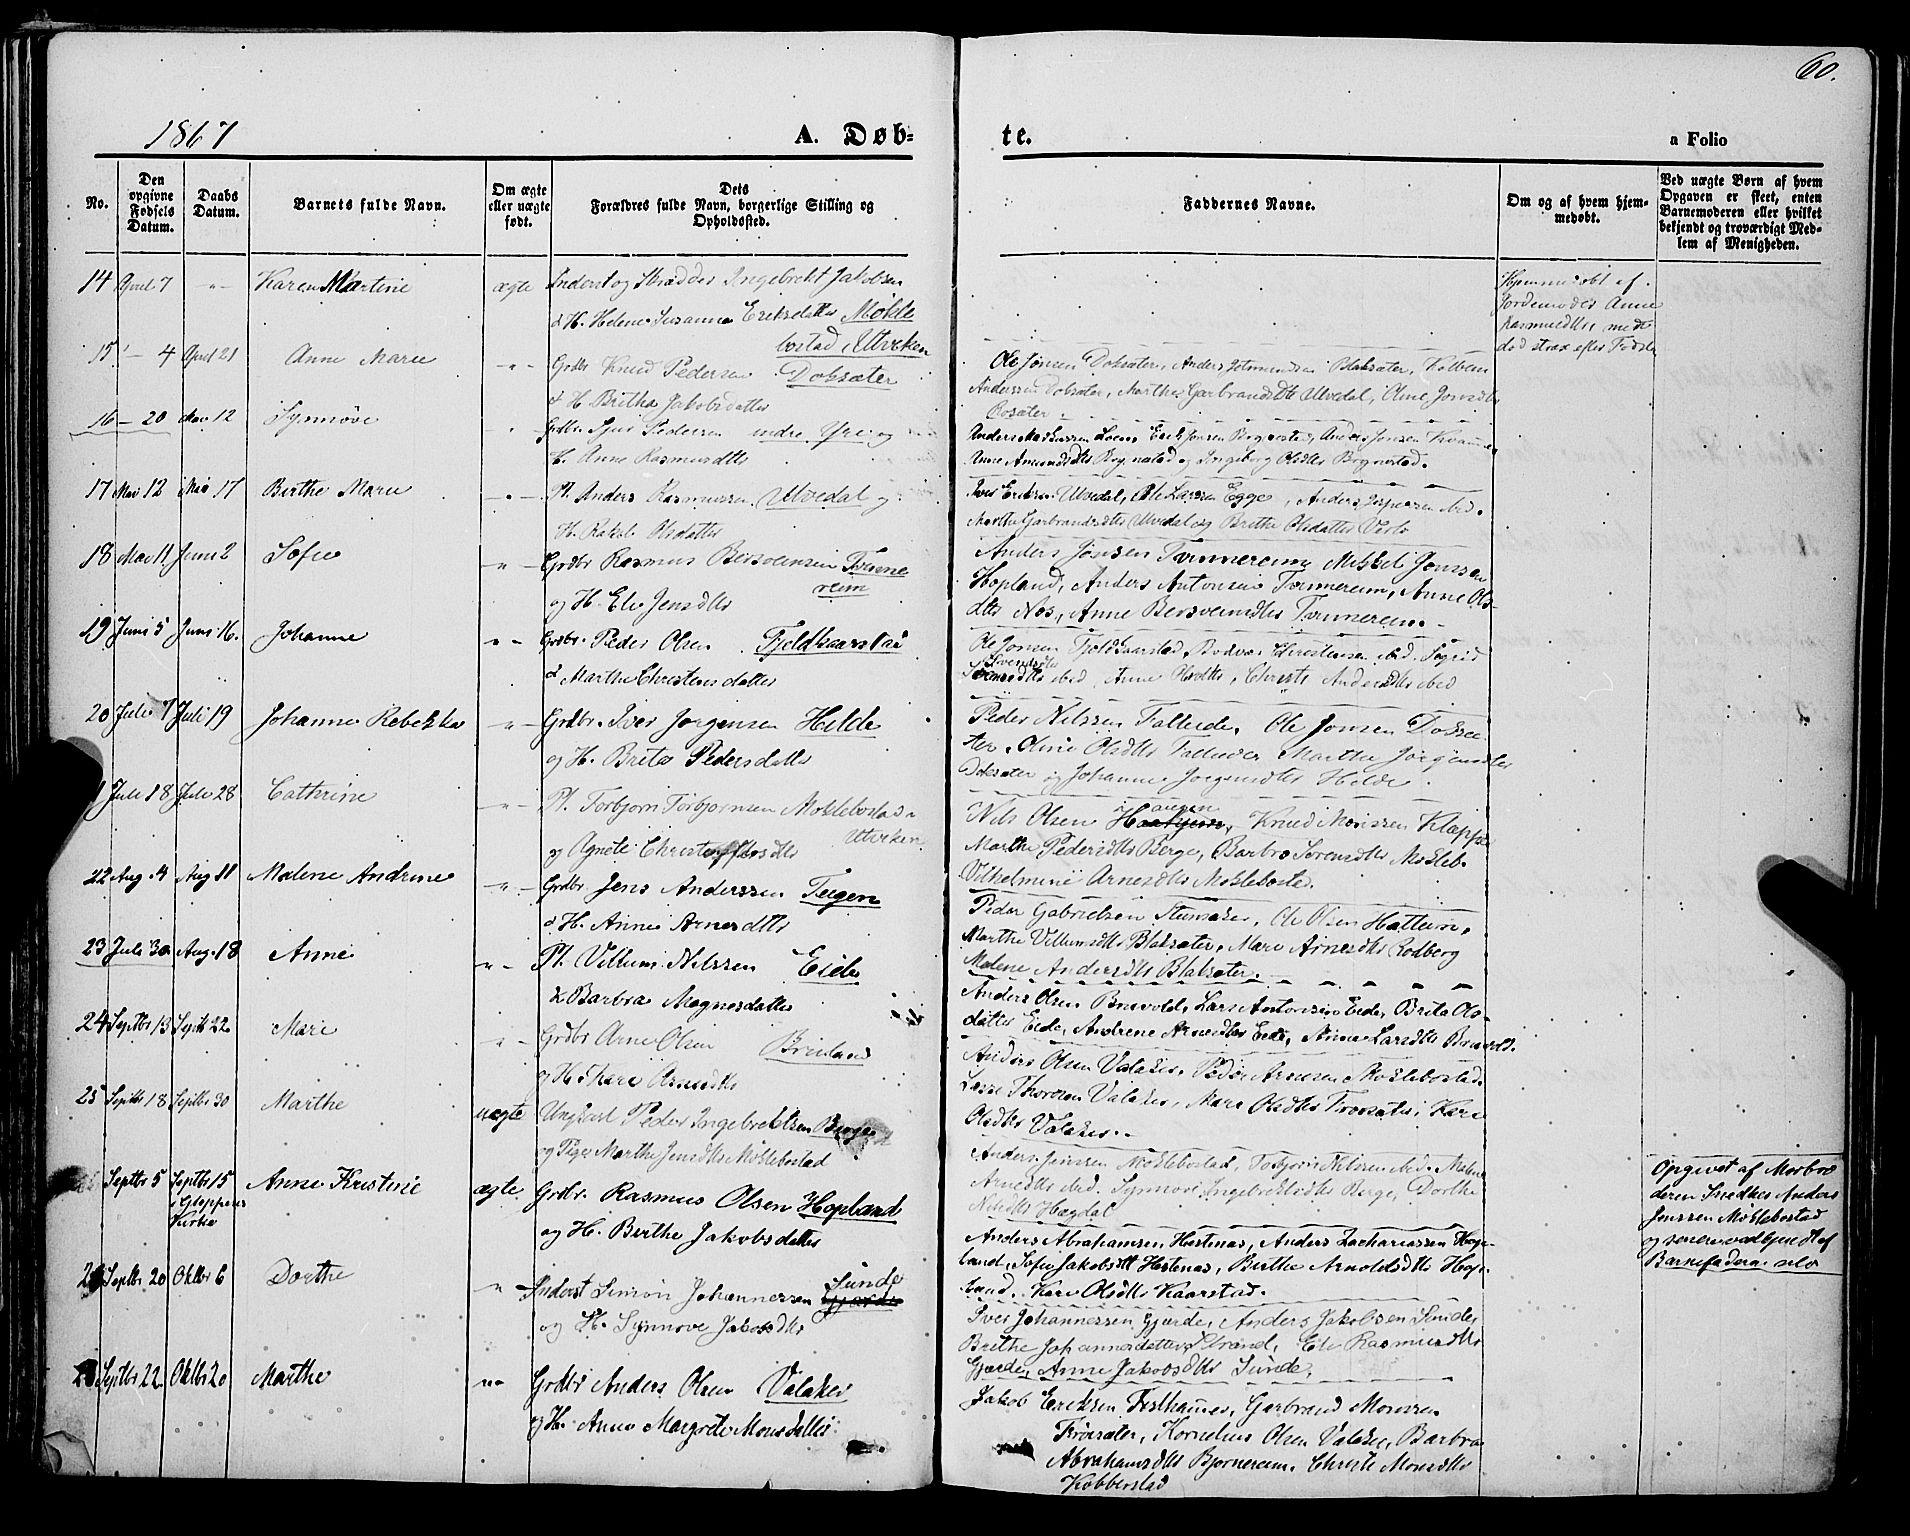 60.
1867
A. Døb-
te.
a Folio
No.
Den opgivne Fødsels Datum.
Daabs Datum.
Barnets fulde Navn.
Om ægte eller uægte født.
Dets Forældres fulde Navn, borgerlige Stilling og Opholdssted.
Faddernes Navne.
Om og af hvem hjemmedøbt.
Ved uægte Børn af hvem Opgaven er skeet, enten Barnemoderen eller hvilket bekjendt og troværdigt Medlem af Menigheden.
14 April 7 Karen Martine ægte Inderst og Skrædder Ingebrekt Jakobsen
& H. Helene Susanna Eriksdatter Mokle
bostad, Utveken
Hjemmedøbt af
Jordemoder Anne
Rasmusdtter med
død strax efter Fødsle
15 - 4 April 21 Anne Marie Grdbr Knud Pedersen Doksæter
& H. Britha Jakobsdatter
Ole Jonsen Doksæter, Anders Blaksæter, Kolbein
Anderssen Doksæter, Marthe Garbrandsdtr Ulvedal, Oline Jonsdtr
Rosæter.
16 - 20 Mai 12 Synnøve Grdbr. Pedersen indre Yri og
H. Anne Rasmusdtter
Anders Loen, Erik Jonsen Bognestad, Anders Jonsen Kvamme
Anne Amundsdtr Bognestad og Ingeborg Olsdtr Bognestad.
17 Mai 12 Mai 17 Birthe Marie Pl. Anders Rasmussen Ulvedal og
H. Rakel Olsdatter
Iver Eriksen Ulvedal, Ole Larsen Egge, Anders Jespersen ibid.
Marthe Garbrandsdtr Ulvedal og Brithe Olsdatter
18 Mai 11 Juni 2 Sofie Grdbr Rasmus Bersveinsen Tvinne
reim
og H. Eli Jensdtter
Anders Jonsen Tvinnereim, Mikkel Jonssen
Hopland, Anders Antonsen Tvinnereim, Anne Ols-
dtter Nos, Anne Bersveinsdtter Tvinnereim.
19 Juni 5 Juni 16. Johanne Grdbr. Peder Olsen Fjeldkaarstad
& Marthe Christensdatter
Ole Jonsen Fjeldkaarstad, Christensen ibid. Sigrid
ibid, Anne Olsdtter, Christi Andersdtter ibid
20 Juli 7 Juli 19 Johanne Rebekka Grdbr. Iver Jorgensen Hilde
og H. Brita Pedersdatter
Peder Nilssen Talleide, Ole Jonsen Doksæ
ter, Oline Olsdtter Talleide, Marthe Jørgensdtter
Doksæter og Johanne Jorgensdtter Hilde.
Juli 18 Juli 28 Cathrine Pl. Torbjorn Torbjornsen Moklebostad
Utveken
og Agnete Christoffersdtter
Nils Olsen Haugen, Knud Monssen Klappe
Marthe Pedersdtter Berge, Barbro Sorensdtter Mokleb.
Vilhelmine Arnesdtter Moklebostad.
22 Aug. 4 Aug 11 Malene Andrine Grdbr Jens Anderssen Teigen
& H. Anne Arnesdtter
Peder Gabrielsen Ole Olsen Hattum,
Marthe Villumsdtter Blaksæter, Mari Arnesdtter Rodberg
Malene Andersdtter Blaksæter.
23 Juli 30 Aug. 18 Anne Pl. Villum Nilssen Eide
& Barbra Magnesdatter
Anders Olsen Bruvold, Lars Antonsen Eide, Brita Ols-
datter Eide, Andrene Arnesdtter Eide, Anna Larsdtter Bruvold.
24 Septbr 13 Septbr 22 Mari Grdbr Arne Olsen Brinland
og H. Kari Arnesdtter
Anders Olsen Valaker, Peder Arnesen Moklebostad,
Lasse Thoresen Valaker, Mari Olsdtter Frøsæter, Kari
Olsdtter Valaker.
25 Septbr 18 Septbr 30 Marthe uægte Ungkarl Peder Ingebrektsen Berge
og Pige Marthe Jensdtter Moklebostad
Anders Jenssen Moklebostad, Torbjorn Nilssen ibid. Malene
Arnesdtter ibid. Synnøve Ingebrektsdtter Berge, Dorthe
Nilsdtter Hægdal
Opgivet af Morbro
deren Snedker Anders
Jenssen Moklebostad
og senere vedkjendt af
Barnefaderen selv
Septbr 5 Septbr 15
i Gloppens
Kirke
Anne Kristine ægte Grdbr. Rasmus Olsen Hopland
og H. Birthe Jakobsdatter
Anders Abrahamsen Hestenæs, Anders Zachariassen Hop-
land, Sofie Jakobsdtt Hestenæs, Birthe Arnoldsdtter Hop-
land, Kari Olsdtter Kaarstad.
Septbr 20 Oktbr 6 Dorthe Inderst Simon Johannessen Sunde
Gjærde
og H. Synnove Jakobsdtter
Iver Johannessen Gjærde, Anders Jakobsen Sunde,
Brithe Johannesdatter Strand, Eli Rasmusdtter
Gjærde, Anne Jakobsdtter Sunde.
Septbr 22 Oktbr 20 Marthe Grdbr Anders Olsen Valaker
og H. Anne Margrete Monsdatter
Jakob Eriksen Garbrand Monssen
Frøsæter, Kornelius Olsen Valaker, Barbra
Abrahamsdtter Bjornereim, Christi Monsdtter
Kobberstad